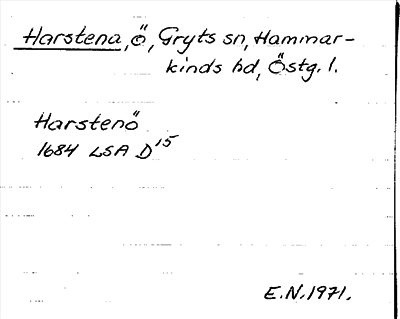 Harstena, ö, Gryts sn, Hammar-
kinds hd, Östg. l.
Harstenö
1684 LSA D15
E.N. 1971.